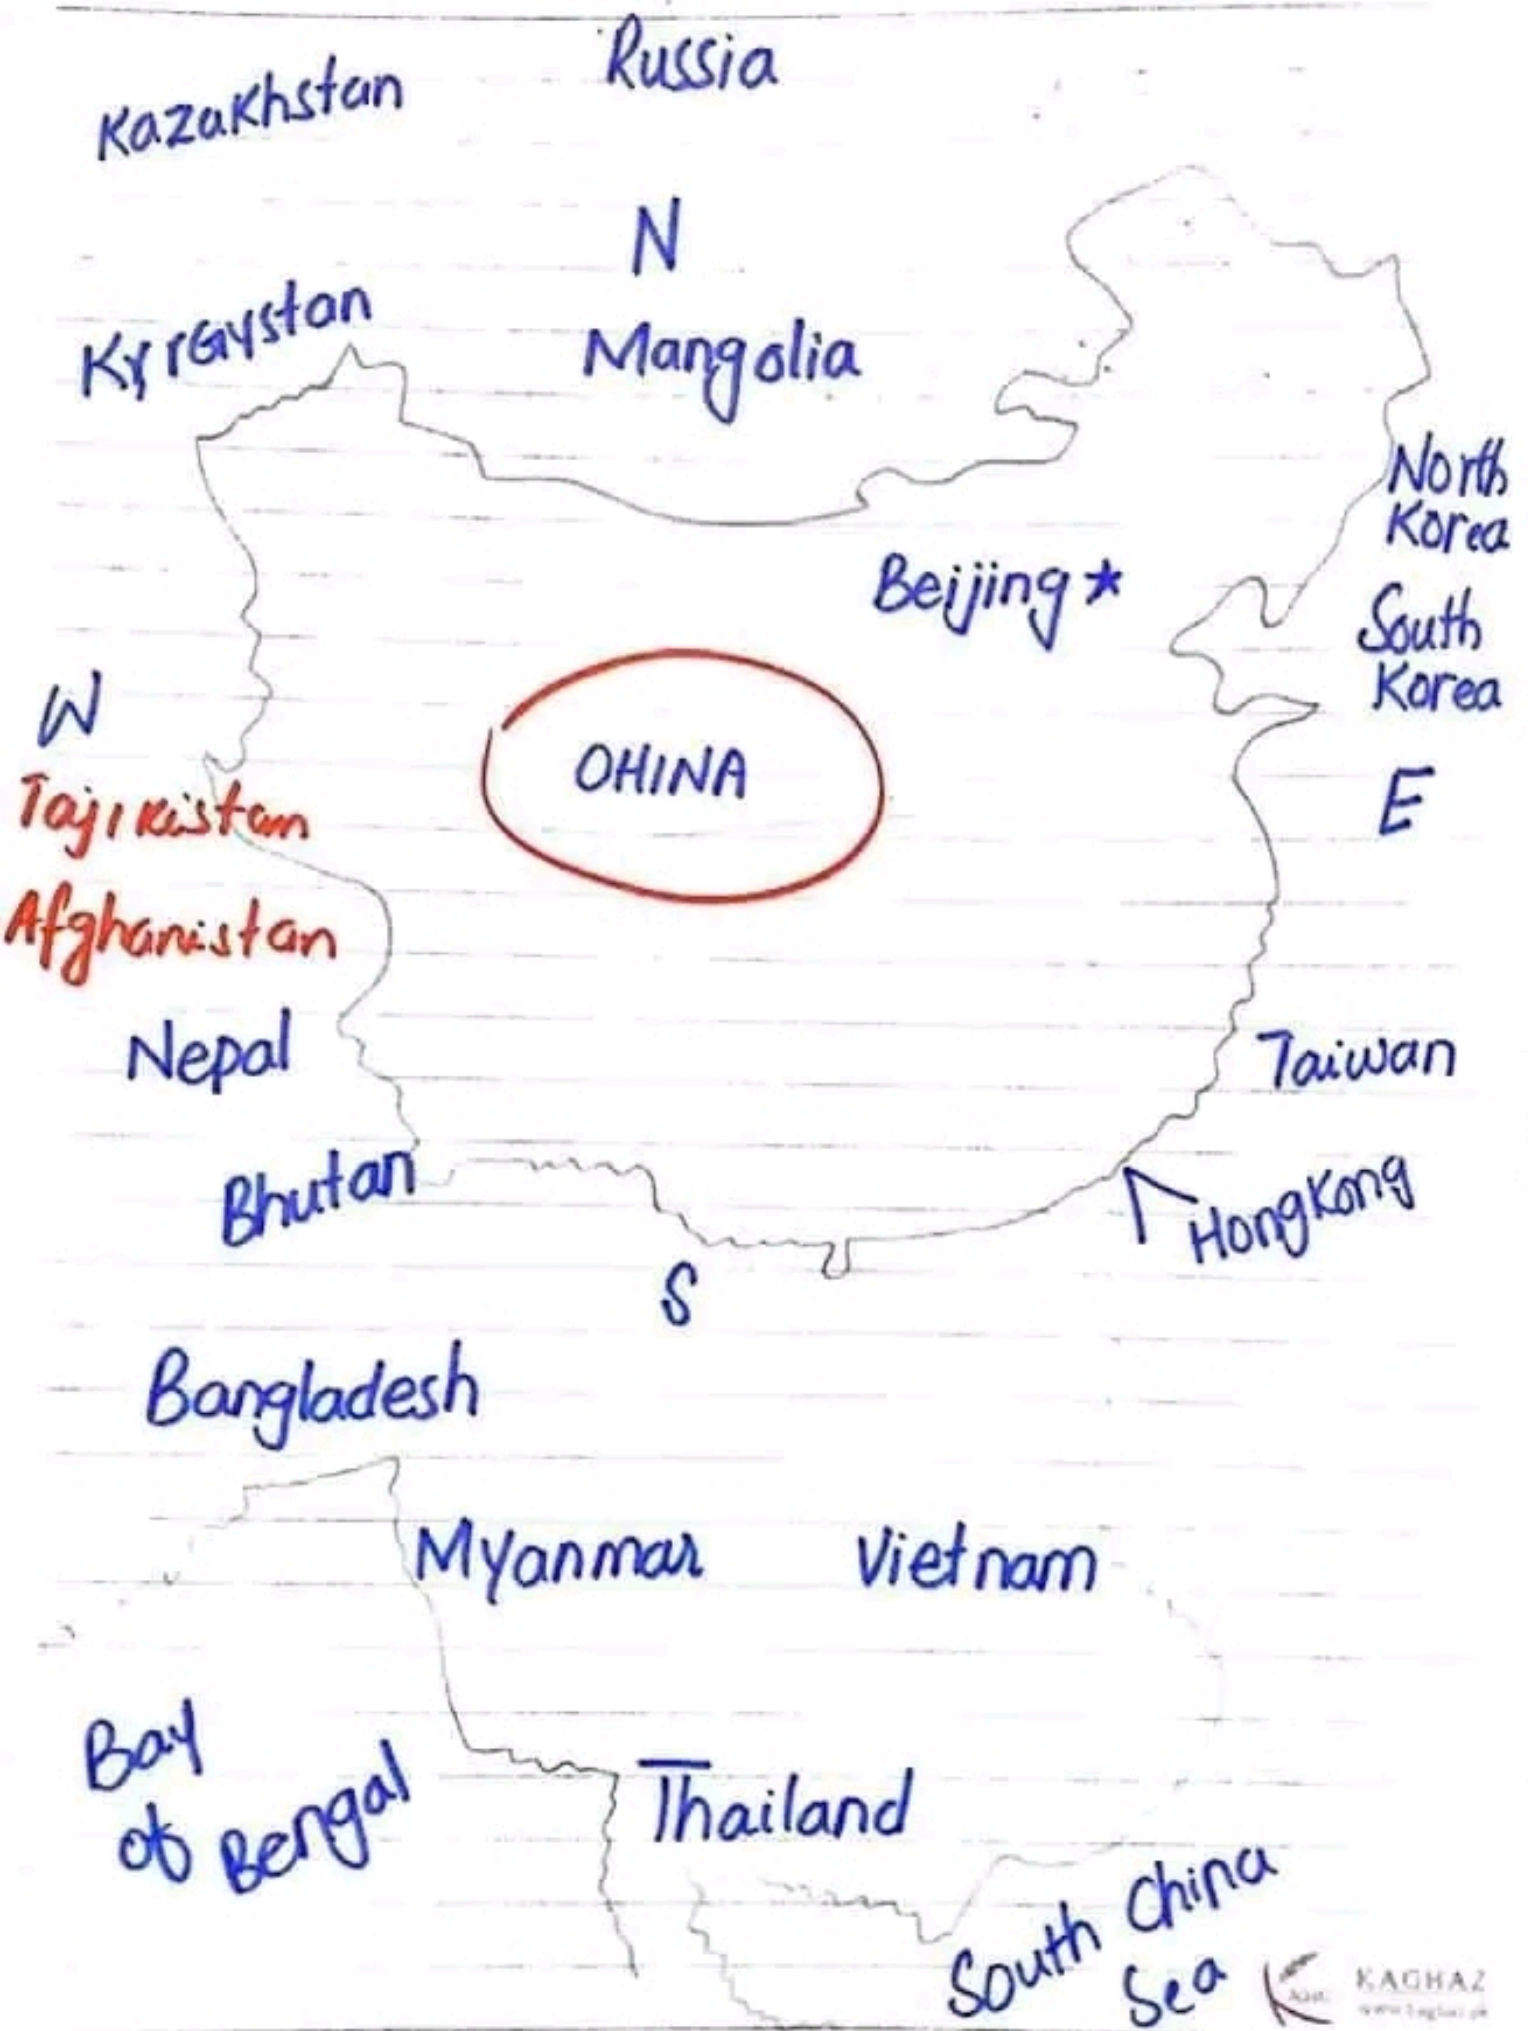 Russia
Kazakhstan
N
Kyrgystan
Mangolia
North
Korea
Beijing
South
Korea
W
OHINA
E
Tajikistan
Afghanistan
Nepal
Taiwan
Bhutan
HongKong
S
Bangladesh
Myanmar
Vietnam
Bay
of Bengal
Thailand
South China
Sea
KAGHAZ